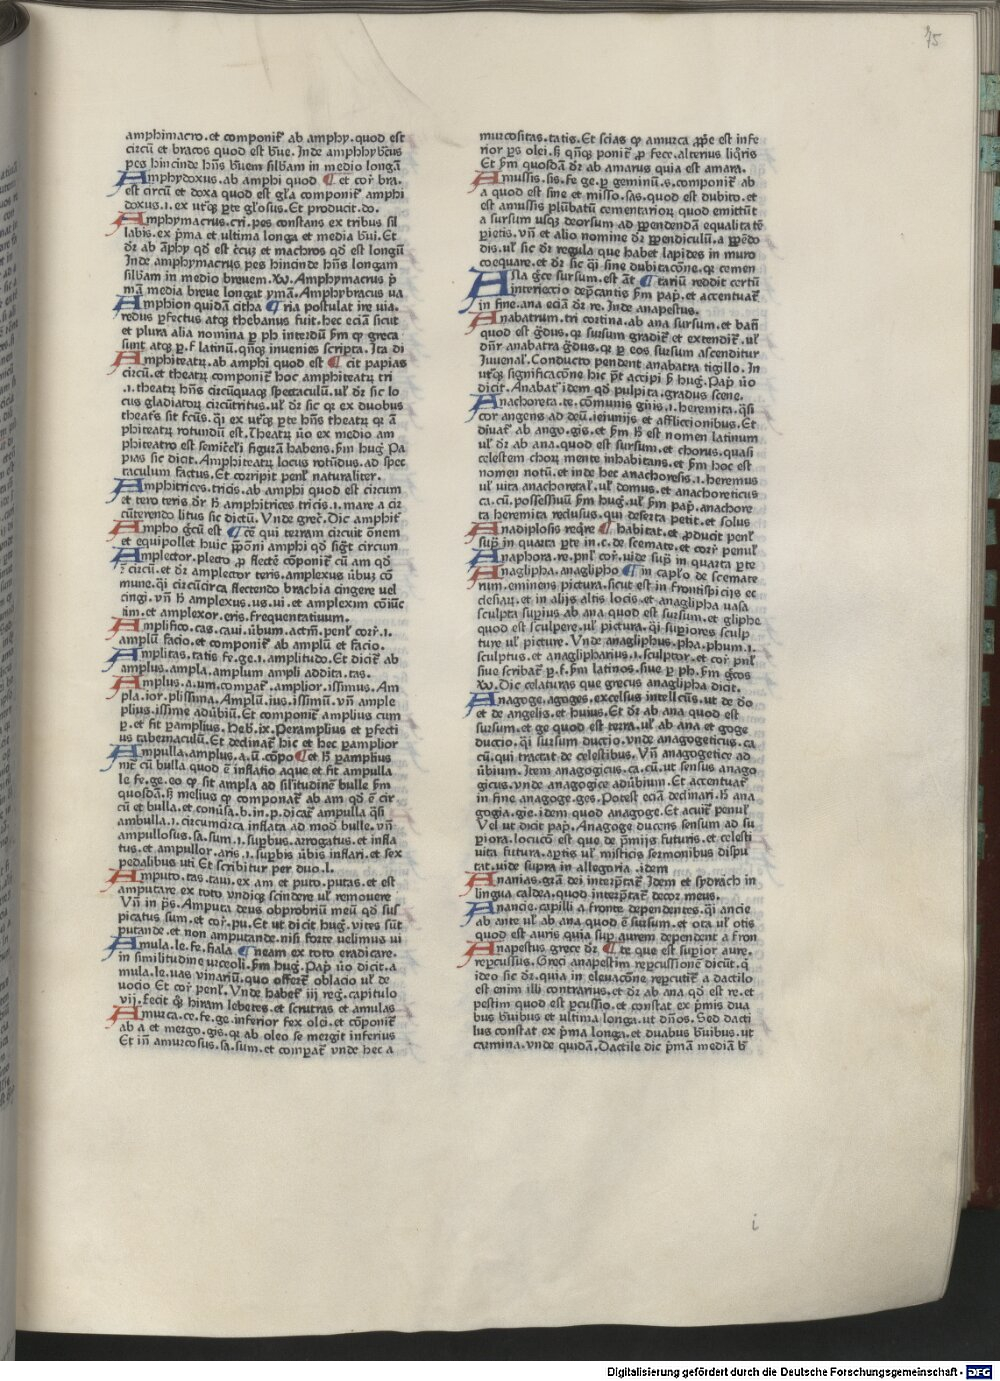 75
amphimacro.et componit᷑ ab amphy.quod est
circū et bracos quod est bͬue.Inde amphybͬcus
pes hincinde hn̄s bͬuem sillb̄am in medio longā
Amphydoxus.ab amphi quod ¶ et cor̄ bra.
est circū et doxa quod est gl̄a componit᷑ amphi
doxus.i.ex utͬqꝫ ꝑte gl̄osus.Et producit.do.
Amphymacrus.cri.pes constans ex tribus sil
labis.ex pͥma et ultima longa et media bͬui.Et
dr̄ ab āphy qd̄ est cͥcuꝫ et machros qd̄ est longū
Inde amphymacrus pes hincinde hn̄s longam
sillb̄am in medio brevem.xv.Amphymacrus pͥ
mā media breve longat ymā.Amphybracus ua
Amphion quidā citha ¶ ria postulat ire uia.
redus ꝑfectus atqꝫ thebanus fuit.hec eciā sicut
et plura alia nomina ꝑ ph interdū s̄m qꝫ greca
sunt atqꝫ ꝑ.f latinū.qn̄qꝫ invenies scripta.Ita di
Amphiteatꝝ.ab amphi quod est ¶ cit papias
circū.et theatꝝ componit᷑ hoc amphiteatꝝ tri
.i.theatꝝ hn̄s circūquaqꝫ spectaculū.ul̓ dr̄ sic lo
cus gladiatoꝝ circūtritus.ul̓ dr̄ sic qꝛ ex duobus
theatͥs sit fcūs.qͥ ex utͬqꝫ ꝑte hn̄s theatꝝ qꝛ ā
phiteatꝝ rotundū est.Theatꝝ ūo ex medio am
phiteatro est semicͥcl̓i figurā habens.s̄m hug̓ Pa
pias sic dicit.Amphiteatꝝ locus rotūdus.ad spec
taculum factus.Et corripit penl̓ naturaliter.
Amphitrices.tricis.ab amphi quod est circum
et tero teris dr̄ h̄ amphitrices tricis.i.mare a cir
cūterendo litus sic dictū.Vnde grec̓.Dic amphit᷑
Ampho gͬcū est ¶ cē qui terram circuit ōnem
et equipollet huic p̄pōni amphi qd̄ sigͣt circum
Amplector.plecto ꝓ flectē cōponit᷑ cū am qd̄
ē circū.et dr̄ amplector teris.amplexus ūbuꝫ cō
mune.qͥ circūcirca flectendo brachia cingere vel
cingi.vn̄ h̄ amplexus.us.ui.et amplexim cōiūc
tim.et amplexor.eris.frequentatiuum.
Amplifico.cas.caui.ūbum.actm̄.penl̓ cor̄.i.
amplū facio.et componit᷑ ab amplū et facio.
Amplitas.tatis fe.ge.i.amplitudo.Et dicit᷑ ab
amplus.ampla.amplum ampli addita.tas.
Amplus.a.um.compat᷑.amplior.issimus.Am
pla.ior.plissima.Amplū.ius.issimū.vn̄ ample
plius.issime adūbiū.Et componit᷑ amplius cum
ꝑ.et fit ꝑamplius.Heb̓.ix.Peramplius et ꝑfecti
us tabernaculū.Et declinat᷑ hic et hec ꝑamplior
Ampulla.amplus.a.ū.cōpo ¶ et h̄ ꝑamplius
nit᷑ cū bulla quod ē inflatio aque et fit ampulla
le fe.ge.eo qꝫ sit ampla ad sil̓itudinē bulle s̄m
quosdā.sꝫ melius qꝫ componat᷑ ab am qd̄ ē cir
cū et bulla.et conūsa.b.in.p.dicat᷑ ampulla qͣsi
ambulla.i.circumcirca inflata ad modū bulle.vn̄
ampullosus.sa.sum.i.suꝑbus.arrogatus.et infla
tus.et ampullor.aris.i.suꝑbis ūbis inflari.et sex
pedalibus uti Et scribitur per duo.l.
Amputo.tas.taui.ex am et puto.putas.et est
amputare.ex toto vndiqꝫ scindere ul̓ removere
Vn̄ in p̄s.Amputa deus obprobriū meū qd̄ sus
picatus sum.et cor̄.pu.Et ut dicit hug̓.vites sūt
putande.et non amputande.nisi forte velimus ui
Amula.le.fe.fiala ¶ neam ex toto eradicare.
in similitudine vrceoli.s̄m hug̓.Pap̄ ūo dicit.a
mula.le.uas vinariū.quo offert᷑ oblacio ul̓ de
vocio Et cor̄ penl̓.Vnde habet᷑ iij reg̓.capitulo
vij.fecit qꝫ hiram lebetes.et scutras et amulas
Amurca.ce.fe.ge.inferior fex olei.et cōponit᷑
ab a et mergo.gis.qꝛ ab oleo se mergit inferius
Et in̄ amurcosus.sa.sum.et compat᷑ vnde hec a
murcositas.tatis.Et scias qꝫ amurca ꝓpͥe est infe
rior ꝑs olei.sꝫ qn̄qꝫ ponit᷑ ꝓ fece.alterius liqͦris
Et s̄m quosdā dr̄ ab amarus quia est amara.
Amussis.sis.fe ge.ꝑ geminū.s.componit᷑ ab
a quod est sine et misso.sas.quod est dubito.et
est amussis plūbatū cementarioꝝ quod emittūt
a sursum usqꝫ deorsum ad ꝑpendendā equalitatē
ꝑietis.vn̄ et alio nomine dr̄ ꝑpendiculū.a ꝑpēdo
dis.ul̓ sic dr̄ regula que habet lapides in muro
coequare.et dr̄ sic qͥ sine dubitacōne.qꝛ cemen
Ana gͬce sursum.est āt ¶ tariū reddit certū
interiectio dep̄cantis s̄m pap̄.et accentuat᷑
in fine.ana eciā dr̄ re.Inde anapestus.
Anabatrum.tri cortina.ab ana sursum.et batī
quod est gͣdus.qꝛ sursum gradit᷑ et extendit᷑.ul̓
dn̄r anabatra gͣdus.qꝛ ꝑ eos sursum ascenditur
Juvenal̓.Conducto pendent anabatra tigillo.In
utͬqꝫ significacōne hic pt̄ accipi s̄m hug̓.Pap̄ ūo
dicit.Anabat᷑ idem qd̄ pulpita.gradus scene.
Anachoreta.te.cōmunis gn̄is.i.heremita.qͣsi
cor angens ad deū.ieiunijs et affliccionibus.Et
diuat᷑ ab ango.gis.et s̄m h̄ est nomen latinum
ul̓ dr̄ ab ana.quod est sursum.et chorus.quasi
celestem choꝝ mente inhabitans.et s̄m hoc est
nomen notū.et inde hec anachoresis.i.heremus
ul̓ vita anachoretal̓.ul̓ domus.et anachoreticus
ca.cū.possessiuū s̄m hug̓.ul̓ s̄m pap̄.anachore
ta heremita reclusus.qui deserta petit.et solus
Anadiplosis reqͥre ¶ habitat.et ꝓducit penl̓
supͣ in quarta ꝑte in.c.de scemate.et cor̄ penul̓
Anaphora.re.pnl̓ cor̄.uide supͣ in quarta ꝑte
Anaglipha.anaglipho ¶ in capl̓o de scemate
rum.eminens pictura.sicut est in frontispicijs ec
clesiaꝝ.et in alijs altis locis.et anaglipha vasa
sculpta suꝑius ab ana quod est sursum.et gliphe
quod est sculpere.ul̓ pictura.qͥ suꝑiores sculp
ture ul̓ picture.Vnde anagliphus.pha.phum.i.
sculptus.et anaglipharius.i.sculptor.et cor̄ pnl̓
siue scribat᷑ ꝑ.f.s̄m latinos.siue ꝑ ph.s̄m gͬcos
xv.Dic celaturas que grecus anaglipha dicit.
Anagoge.agoges.excelsus intellctūs.ut de do
et de angelis.et huius.Et dr̄ ab ana quod est
sursum.et ge quod est terra.ul̓ ab ana et goge
ductio.qͥ sursum ductio.vnde anagogeticus.ca
cū.qui tractat de celestibus.Vn̄ anagogetice ad
ūbium.Item anagogicus.ca.cū.ut sensus anago
gicus.vnde anagogice adūbium.Et accentuat᷑
in fine anagoge.ges.Potest eciā declinari.h̄ ana
gogia.gie.idem quod anagoge.Et acuit᷑ penul̓
Vel ut dicit pap̄.Anagoge ducens sensum ad su
ꝑiora.locucō est que de p̄mijs futuris.et celesti
vita futura.aꝑtis ul̓ misticis sermonibus dispu
tat.uide supra in allegoria.idem
Ananias.grā dei interp̄tat᷑ Idem et sydrach in
lingua caldea.quod interp̄tat᷑ decor meus.
Anancie.capilli a fronte dependentes.qͥ ancie
ab ante ul̓ ab ana quod ē sursum.et ota ul̓ otis
quod est auris quia suꝑ aurem dependent a fron
Anapestus grece dr̄ ¶ te que est suꝑior aure.
reꝑcussus.Greci anapestim reꝑcussionē dicūt.qͥ
ideo sic dr̄.quia in elevacōne reꝑcutit᷑ a dactilo
est enim illi contrarius.et dr̄ ab ana qd̄ est re.et
pestim quod est ꝑcussio.et constat ex pͥmis dua
bus bͬuibus et ultima longa.ut dn̄os.Sed dacti
lus constat ex pͥma longa.et duabus bͬuibus.ut
carmina.vnde quidā.Dactile dic pͥmā mediā bͬ
i
Digitalisierung gefördert durch die Deutsche Forschungsgemeinschaft - DFG